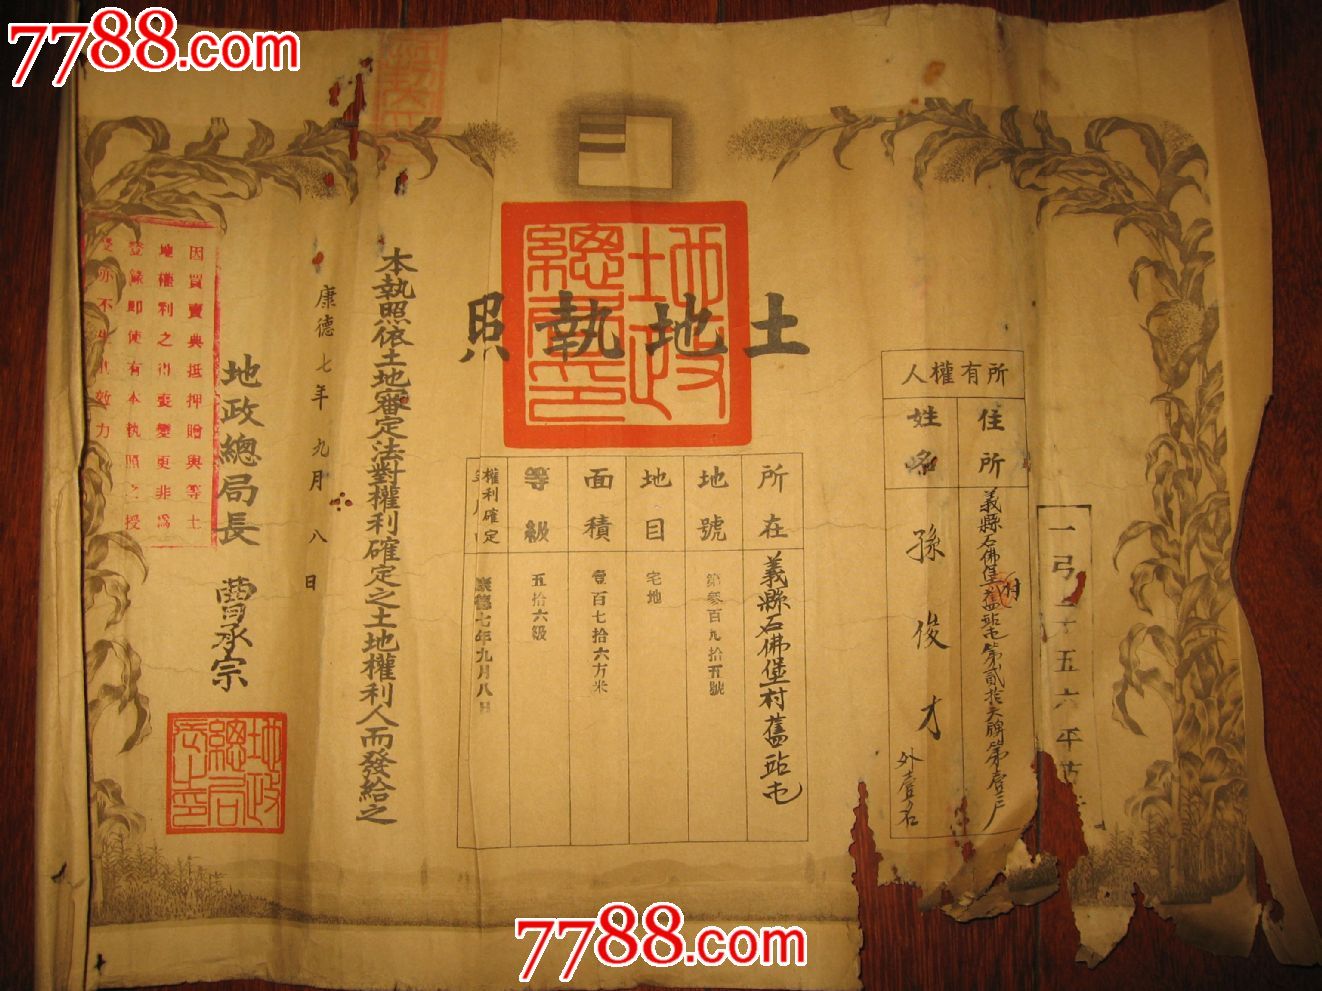 7788.com
土地執照
所有權人
住所
義縣石佛堡村舊站屯第貳拾天牌第壹户
姓名
孫俊才
外壹名
所在
義縣石佛堡村舊站屯
地號
第參百九拾五號
地目
宅地
面積
壹百七拾六方米
等級
五拾六級
權利確定
康德七年九月八日
本執照依土地審定法對權利確定之土地權利人而發給之
康德七年九月八日
地政總局長 曹承宗
因買賣典抵押贈與等土
地權利之得喪變更非爲
登錄即使有本執照之授
受亦不生其效力
地政總局之印
地政總局長之印
7788.com